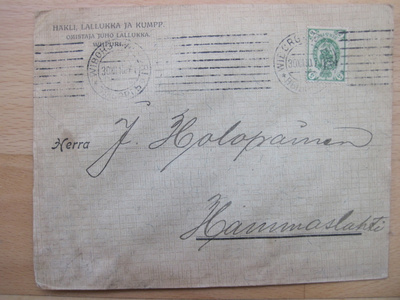 HAKLI, LALLUKKA JA KUMPP.
OMISTAJA JUHO LALLUKKA.
WIIPURI.
WIBORG
Herra J. Holopainen
Hammaslahti